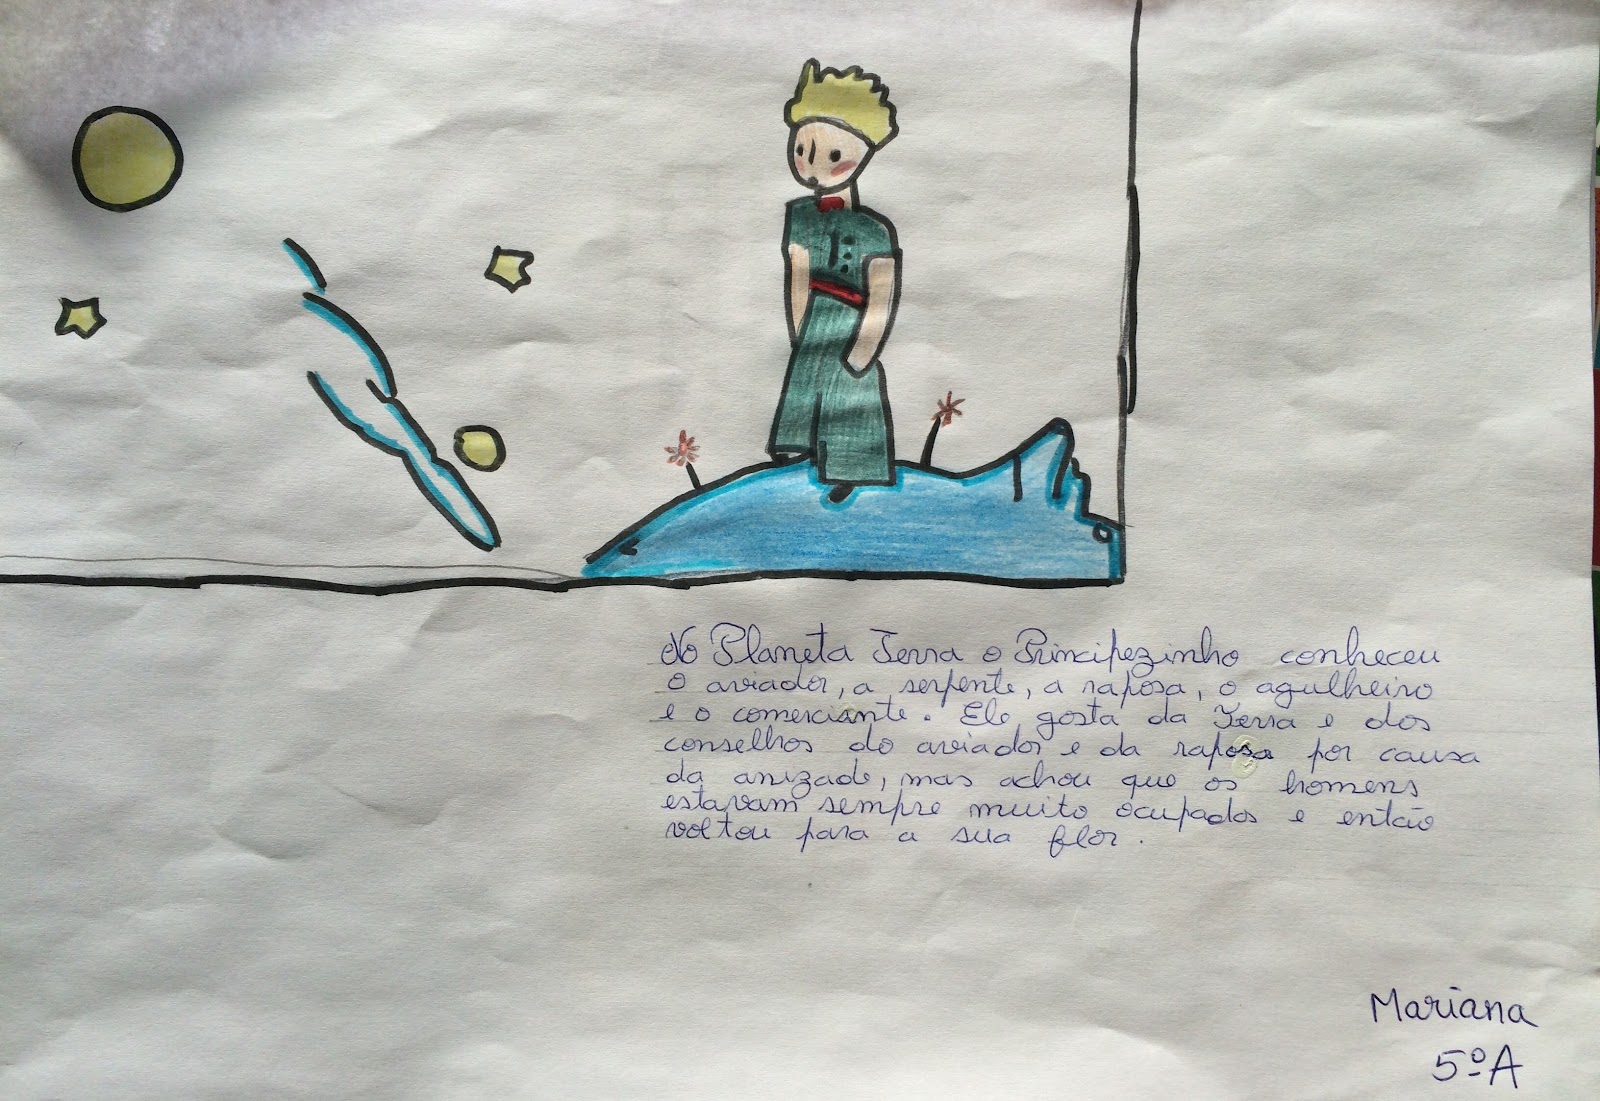 No Planeta Terra o Principezinho conheceu
o aviador, a serpente, a raposa, o agulheiro
e o comerciante. Ele gosta da Terra e dos
conselhos do aviador e da raposa por causa
da anizade, mas achou que os homens
estavam sempre muito ocupados e então
voltou para a sua flor.
Mariana
5ºA